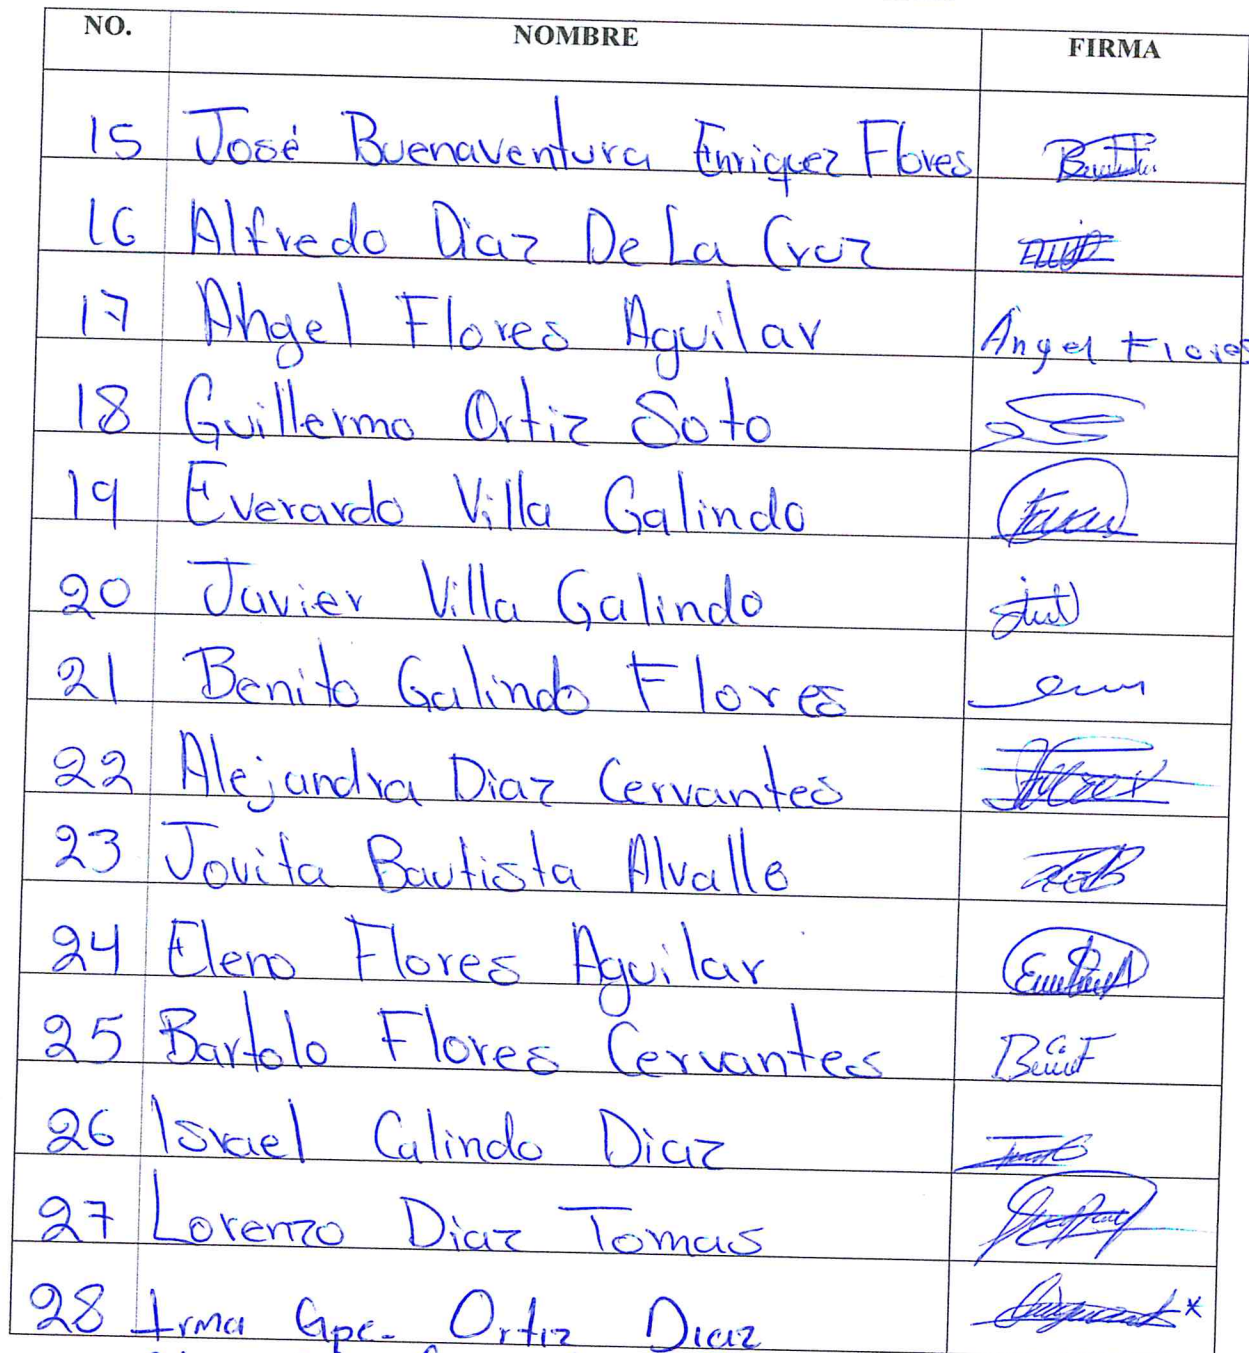 NO. NOMBRE FIRMA
15 José Buenaventura Enriquez Flores
16 Alfredo Diaz De La Cruz
17 Angel Flores Aguilar Ángel Flores
18 Guillermo Ortiz Soto
19 Everardo Villa Galindo
20 Javier Villa Galindo
21 Benito Galindo Flores
22 Alejandra Diaz Cervantes
23 Jovita Bautista Alvalle
24 Eleno Flores Aguilar
25 Bartolo Flores Cervantes
26 Israel Calindo Diaz
27 Lorenzo Diaz Tomas
28 Irma Gpe. Ortiz Diaz